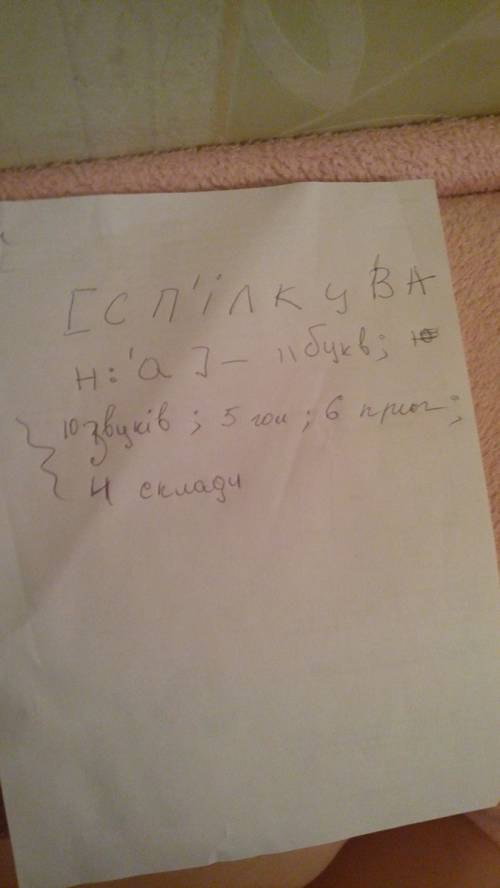 [ С П ' І Л К У В А
Н : ' а ] – 11 букв;
10 звуків ; 5 гол ; 6 приг ;
4 склади